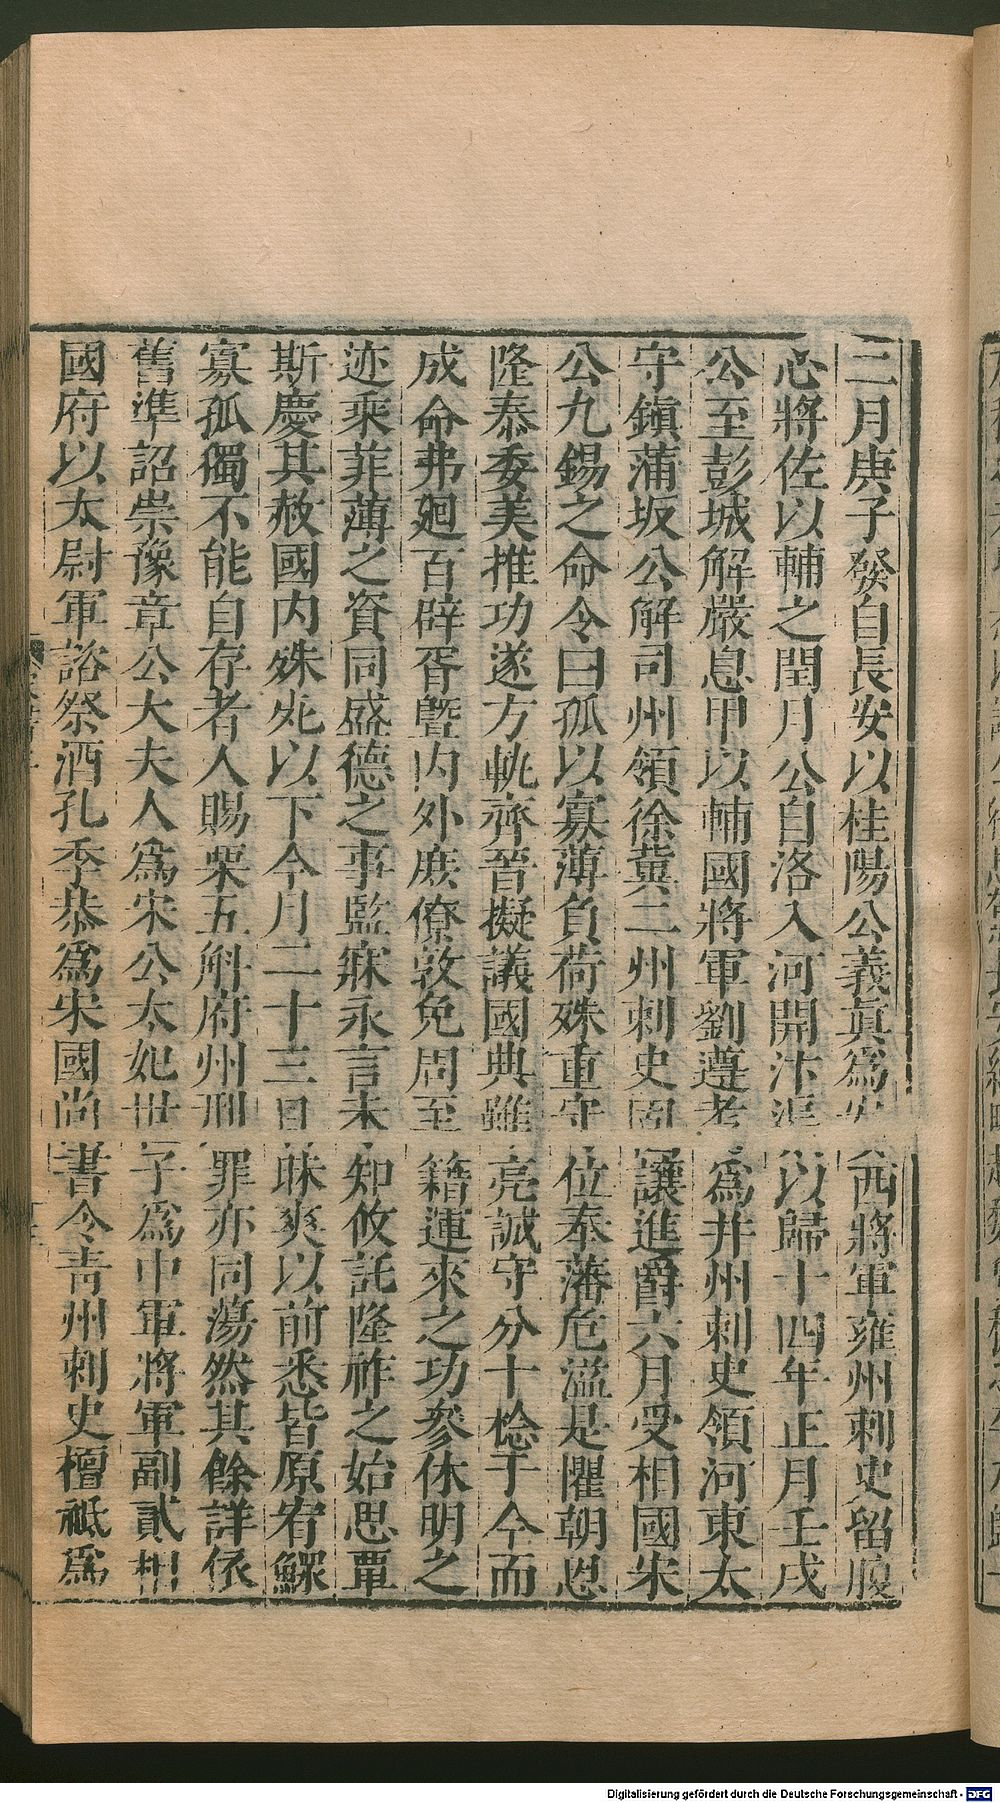 二月庚子發自長安以桂陽公義眞爲安西將軍雍州刺史留腹
心將佐以輔之閏月公自洛入河開汴渠以歸十四年正月壬戌
公至彭城解嚴息甲以輔國將軍劉遵考爲幷州刺史領河東太
守鎮蒲坂公解司州領徐冀二州刺史固讓進爵六月受相國宋
公九錫之命令曰孤以寡薄負荷殊重守位奉藩危溢是懼朝恩
隆泰委美推功遂方軌齊晉擬議國典雖亮誠守分十稔于今而
成命弗廻百辟胥曁內外庶僚敦免周至籍運來之功參休明之
迹乘菲薄之資同盛德之事監寐永言未知攸託隆祚之始思覃
斯慶其赦國內殊死以下今月二十三日昧爽以前悉皆原宥鰥
寡孤獨不能自存者人賜粟五斛府州刑罪亦同蕩然其餘詳依
舊準詔崇豫章公太夫人爲宋公太妃世子爲中軍將軍副貳相
國府以太尉軍諮祭酒孔季恭爲宋國尚書令青州刺史檀祗爲
Digitalisierung gefördert durch die Deutsche Forschungsgemeinschaft - DFG